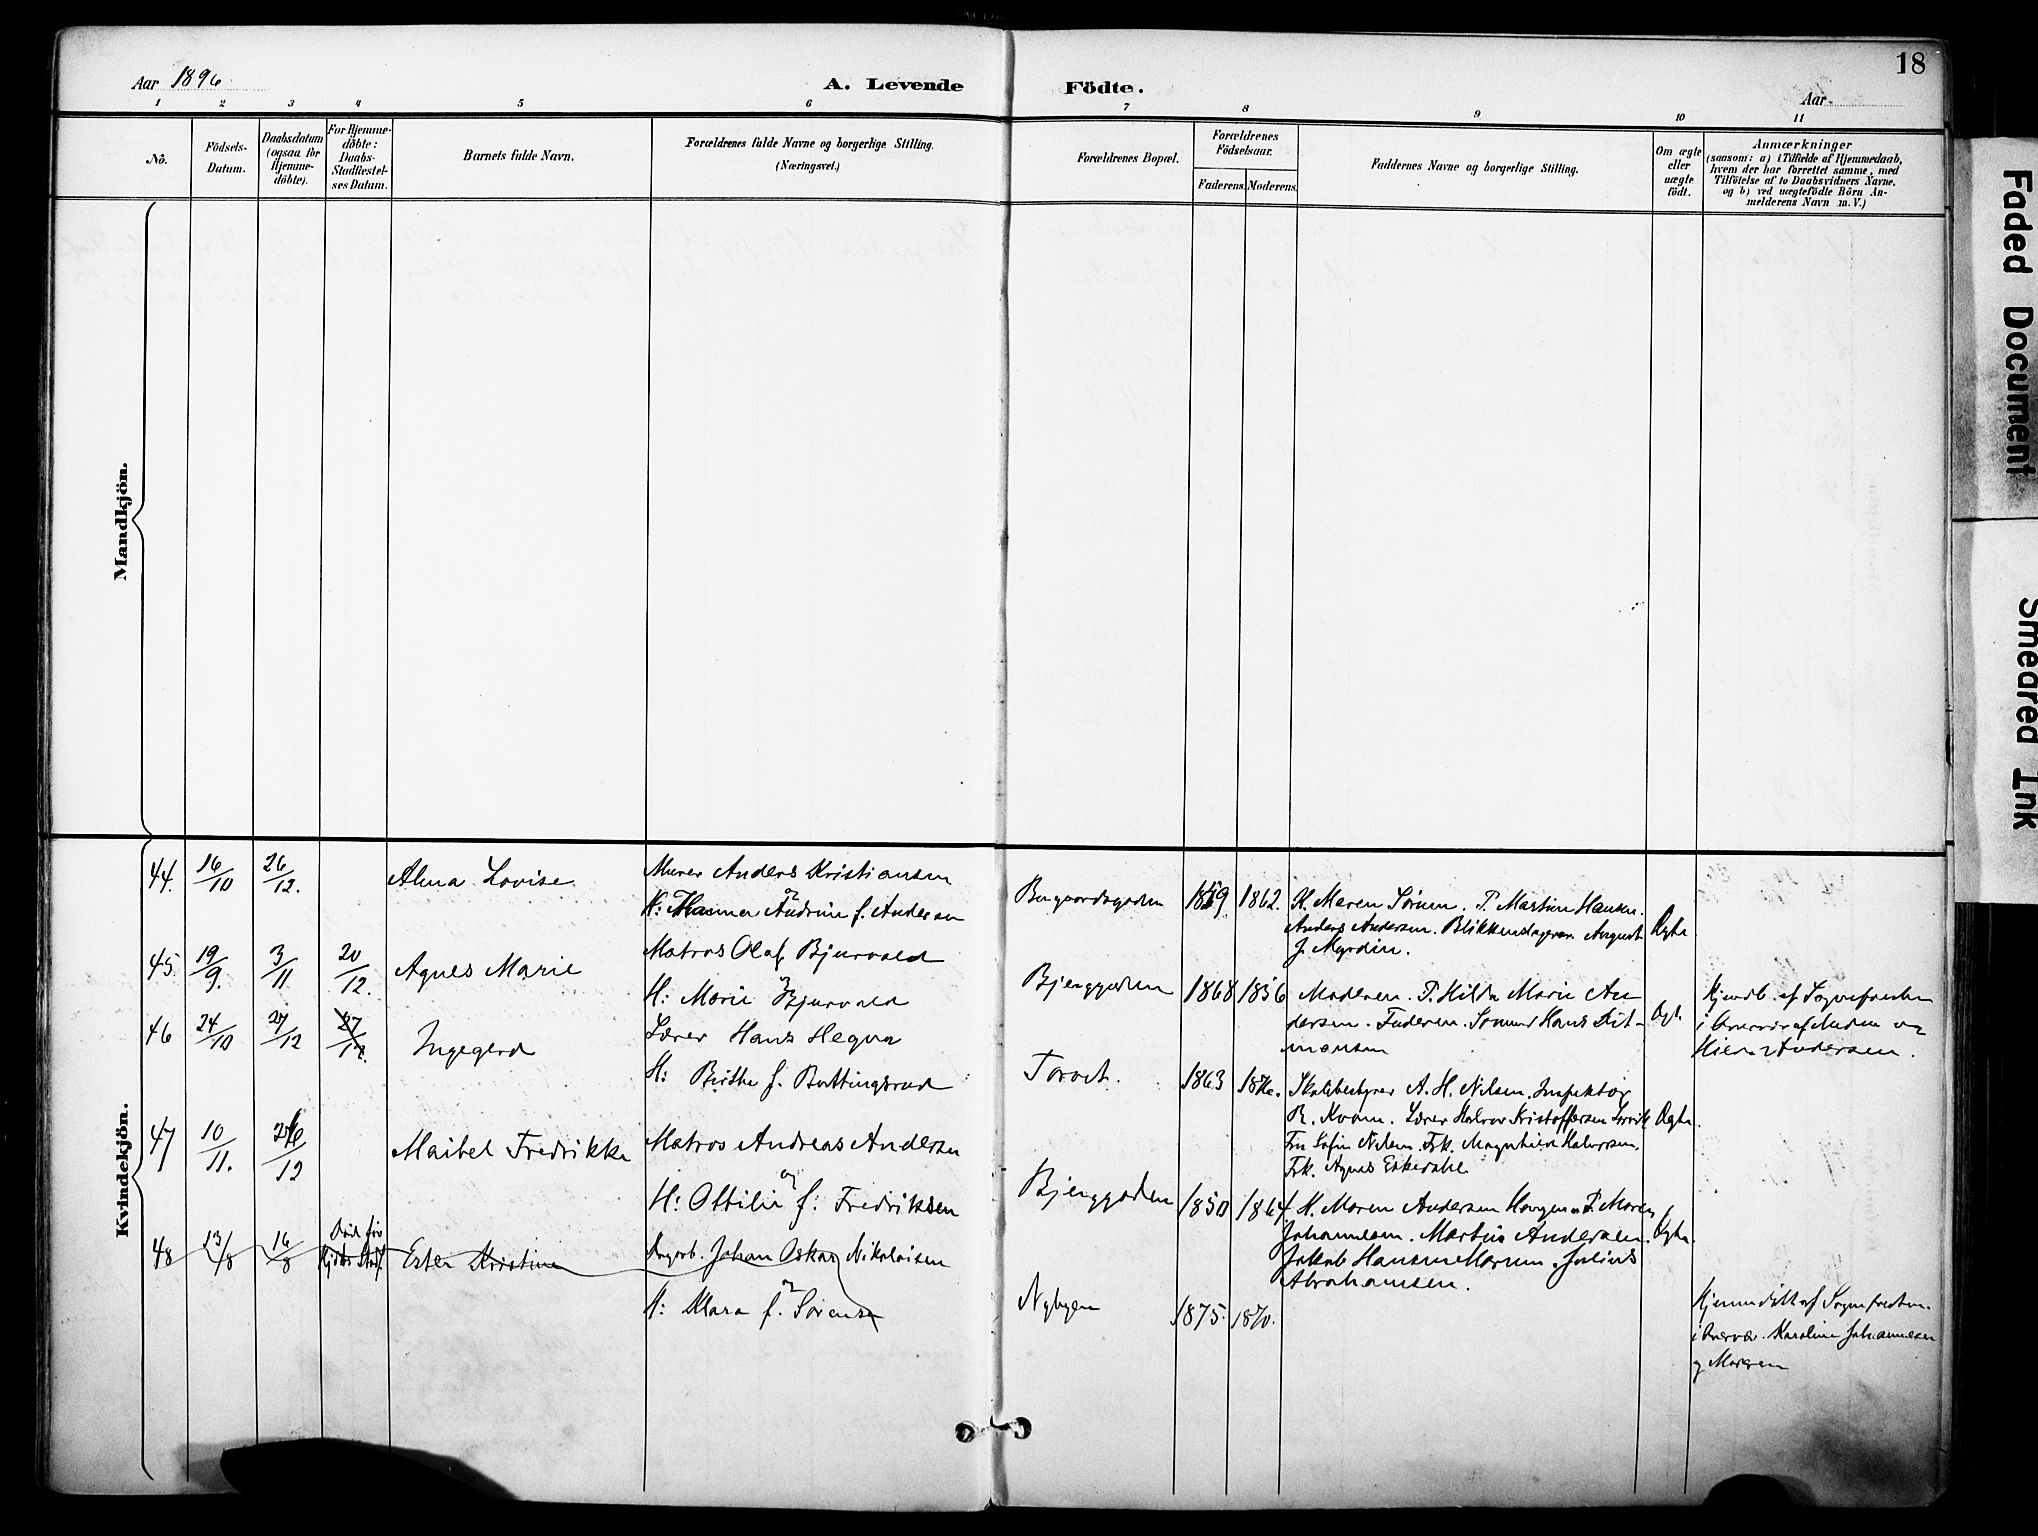 18
Aar 1896
A. Levende Födte.
Aar
1 2 3 4 5 6 7 8 9 10 11
Nô.
Födsels-
Datum.
Daabsdatum
(ogsaa for
Hjemme-
döbte).
For Hjemme-
döbte:
Daabs-
Stadfæstel-
ses Datum.
Barnets fulde Navn.
Forældrenes fulde Navne og borgerlige Stilling.
(Næringsvei.)
Forældrenes Bopæl.
Forældrenes
Födselsaar.
Faderens. Moderens.
Faddernes Navne og borgerlige Stilling.
Om ægte
eller
uægte
födt.
Anmærkninger
(saasom: a) i Tilfælde af Hjemmedaab,
hvem der har forrettet samme, med
Tilföielse af to Daabsvidners Navne.
og b) ved uægtefödte Börn An-
melderens Navn m. V.)
Mandkjön.
Kvindekjön.
44. 16/10 26/12. Alma Lovise
Murer Anders Kristiansen
og
H: Hanna Andrine f. Andersen
1859 1862. H. Maren Sørum. P. Martin Hansen.
Anders Andersen. August
J. Myrdin.
Ægte
45. 19/9. 3/11 20/12. Agnes Marie
Matros Olaf Bjurvald
og
H: Marie Bjurvald
Bjerggaden 1868 1856 Moderen. P. Hilda Marie An
dersen. Faderen. Hans Dit-
mansen
Ægte
Hjemdb. af
i og
Andersen.
46 24/10 27/12 27/12. Ingegerd
Lærer Hans Hegna
H: Birthe f. Buttingsrud
Torvet. 1863 Skolebestyrer A. H. Nilsen. Inspektør
R. Kvam. Lærer Halvor Kristoffersen
Fru Sofie Nilsen Frk. Magnhild Halvorsen.
Frk. Agnes
Ægte.
47 10/11. 26/12 Maibel Fredrikke
Matros Andreas Andersen
og
H: Ottilie f: Fredriksen
Bjerggaden 1850 1864. H. Maren Andersen Haugen. P. Maren
Johannesen. Martin Andersen.
Jakob Hansen Julius
Abrahamsen.
Ægte.
48 13/8 16/8 Død før
Stadf. Ester Kristine
Dagarb. Johan Oskar Nikolaisen
og
H: Klara f. Sørensen
Nybyen 1875. 1870.
Hjemmedøbt af
i Karoline Johannesen
og
Faded Document
Smeared Ink